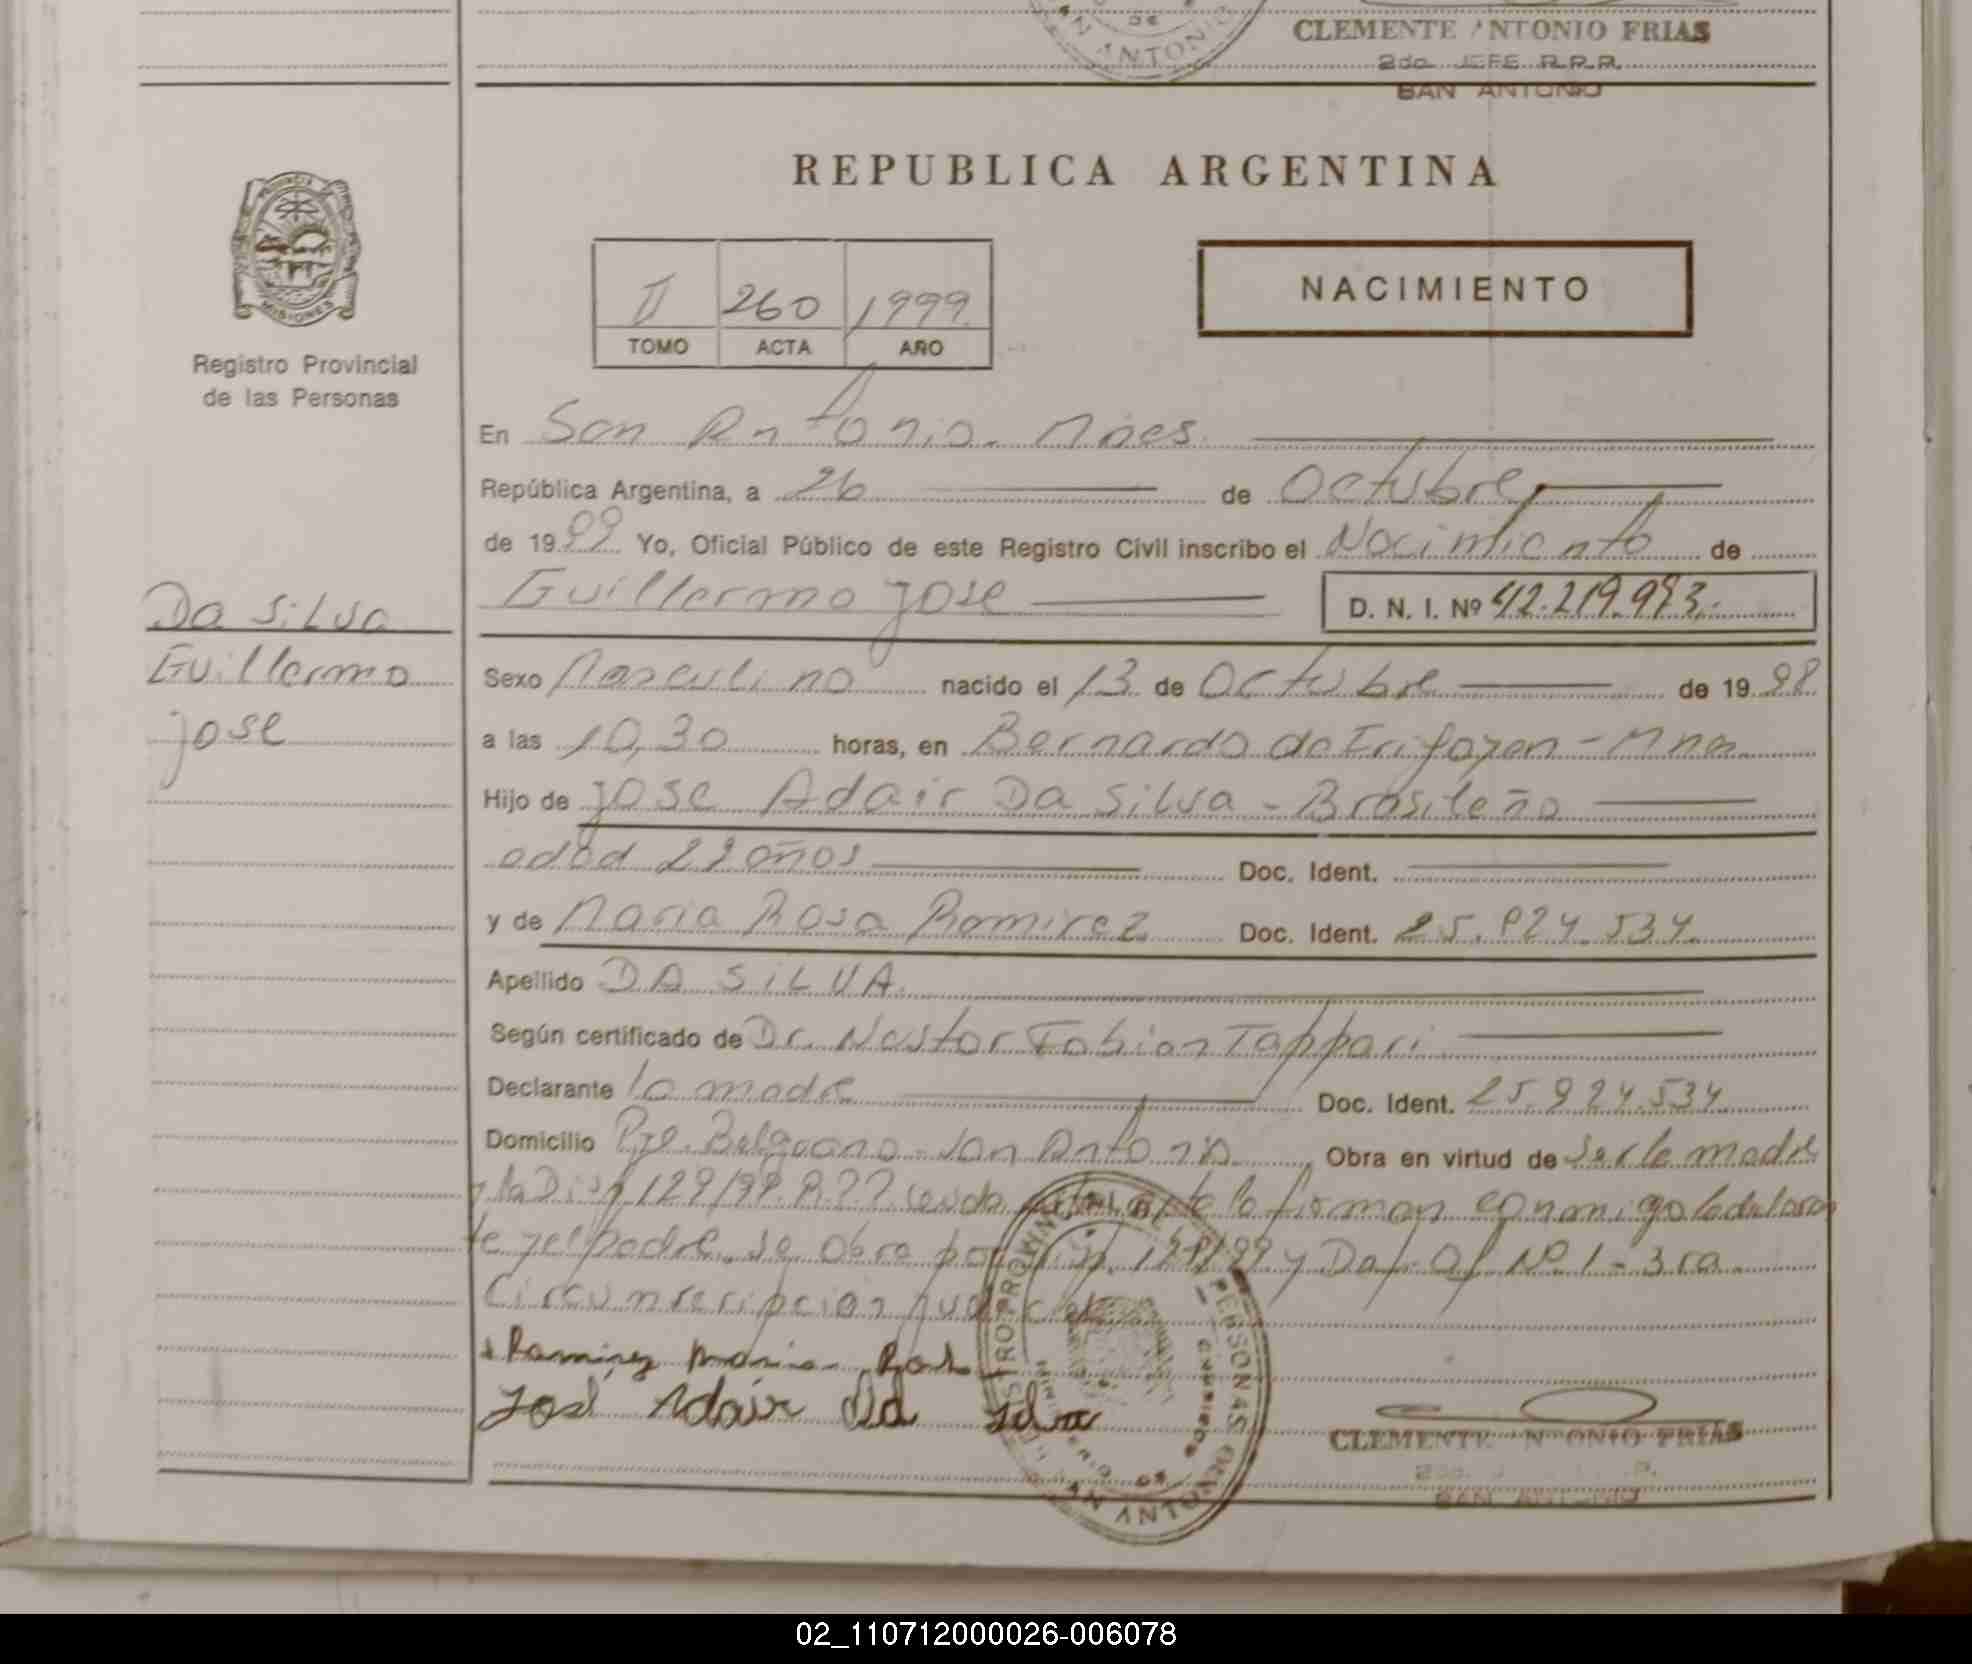 CLEMENTE ANTONIO FRIAS
2do JEFE R.P.P.
SAN ANTONIO
REPUBLICA ARGENTINA
PROVINCIA
MISIONES
Registro Provincial
de las Personas
II 260 1999
TOMO ACTA AÑO
NACIMIENTO
En San Antonio. Mnes.
República Argentina, a 26 de Octubre
de 1999 Yo, Oficial Público de este Registro Civil inscribo el Nacimiento de
Guillermo jose D. N. I. Nº 42.219.973.
Da Silva
Guillermo
jose
Sexo Masculino nacido el 13 de Octubre de 1998
a las 10,30 horas, en Bernardo de Irigoyen - Mnes
Hijo de jose Adair Da Silva - Brasileño
edad 22 años Doc. Ident.
y de Maria Rosa Ramirez Doc. Ident. 25.924.534.
Apellido DA SILVA.
Según certificado de Dr. Nestor Fabian Tappari
Declarante la madre Doc. Ident. 25.924.534
Domicilio Pje. Belgrano - San Antonio Obra en virtud de ser la madre
y la Disp 129/99 R.P.P. la firman conmigo la declaran
te y el padre. se obra por Disp. 129/99 y Def. Of Nº 1 - 3ra
Circunscripcion judicial
Ramirez Maria Rosa
José Adair Da Silva
CLEMENTE ANTONIO FRIAS
SAN ANTONIO
02_110712000026-006078